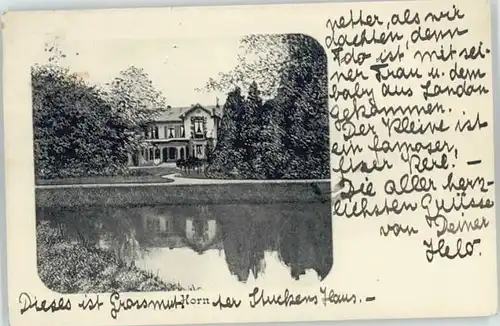 netter, als wir
dachten, denn
Ado ist mit sei-
ner Frau u. dem
baby aus London
gekommen.
Der Kleine ist
ein famoser,
Kerl! –
Die aller herz-
lichsten Grüsse
von Deiner
Helo.
Horn
Dieses ist Grossmut-ter Stuckens Haus. –